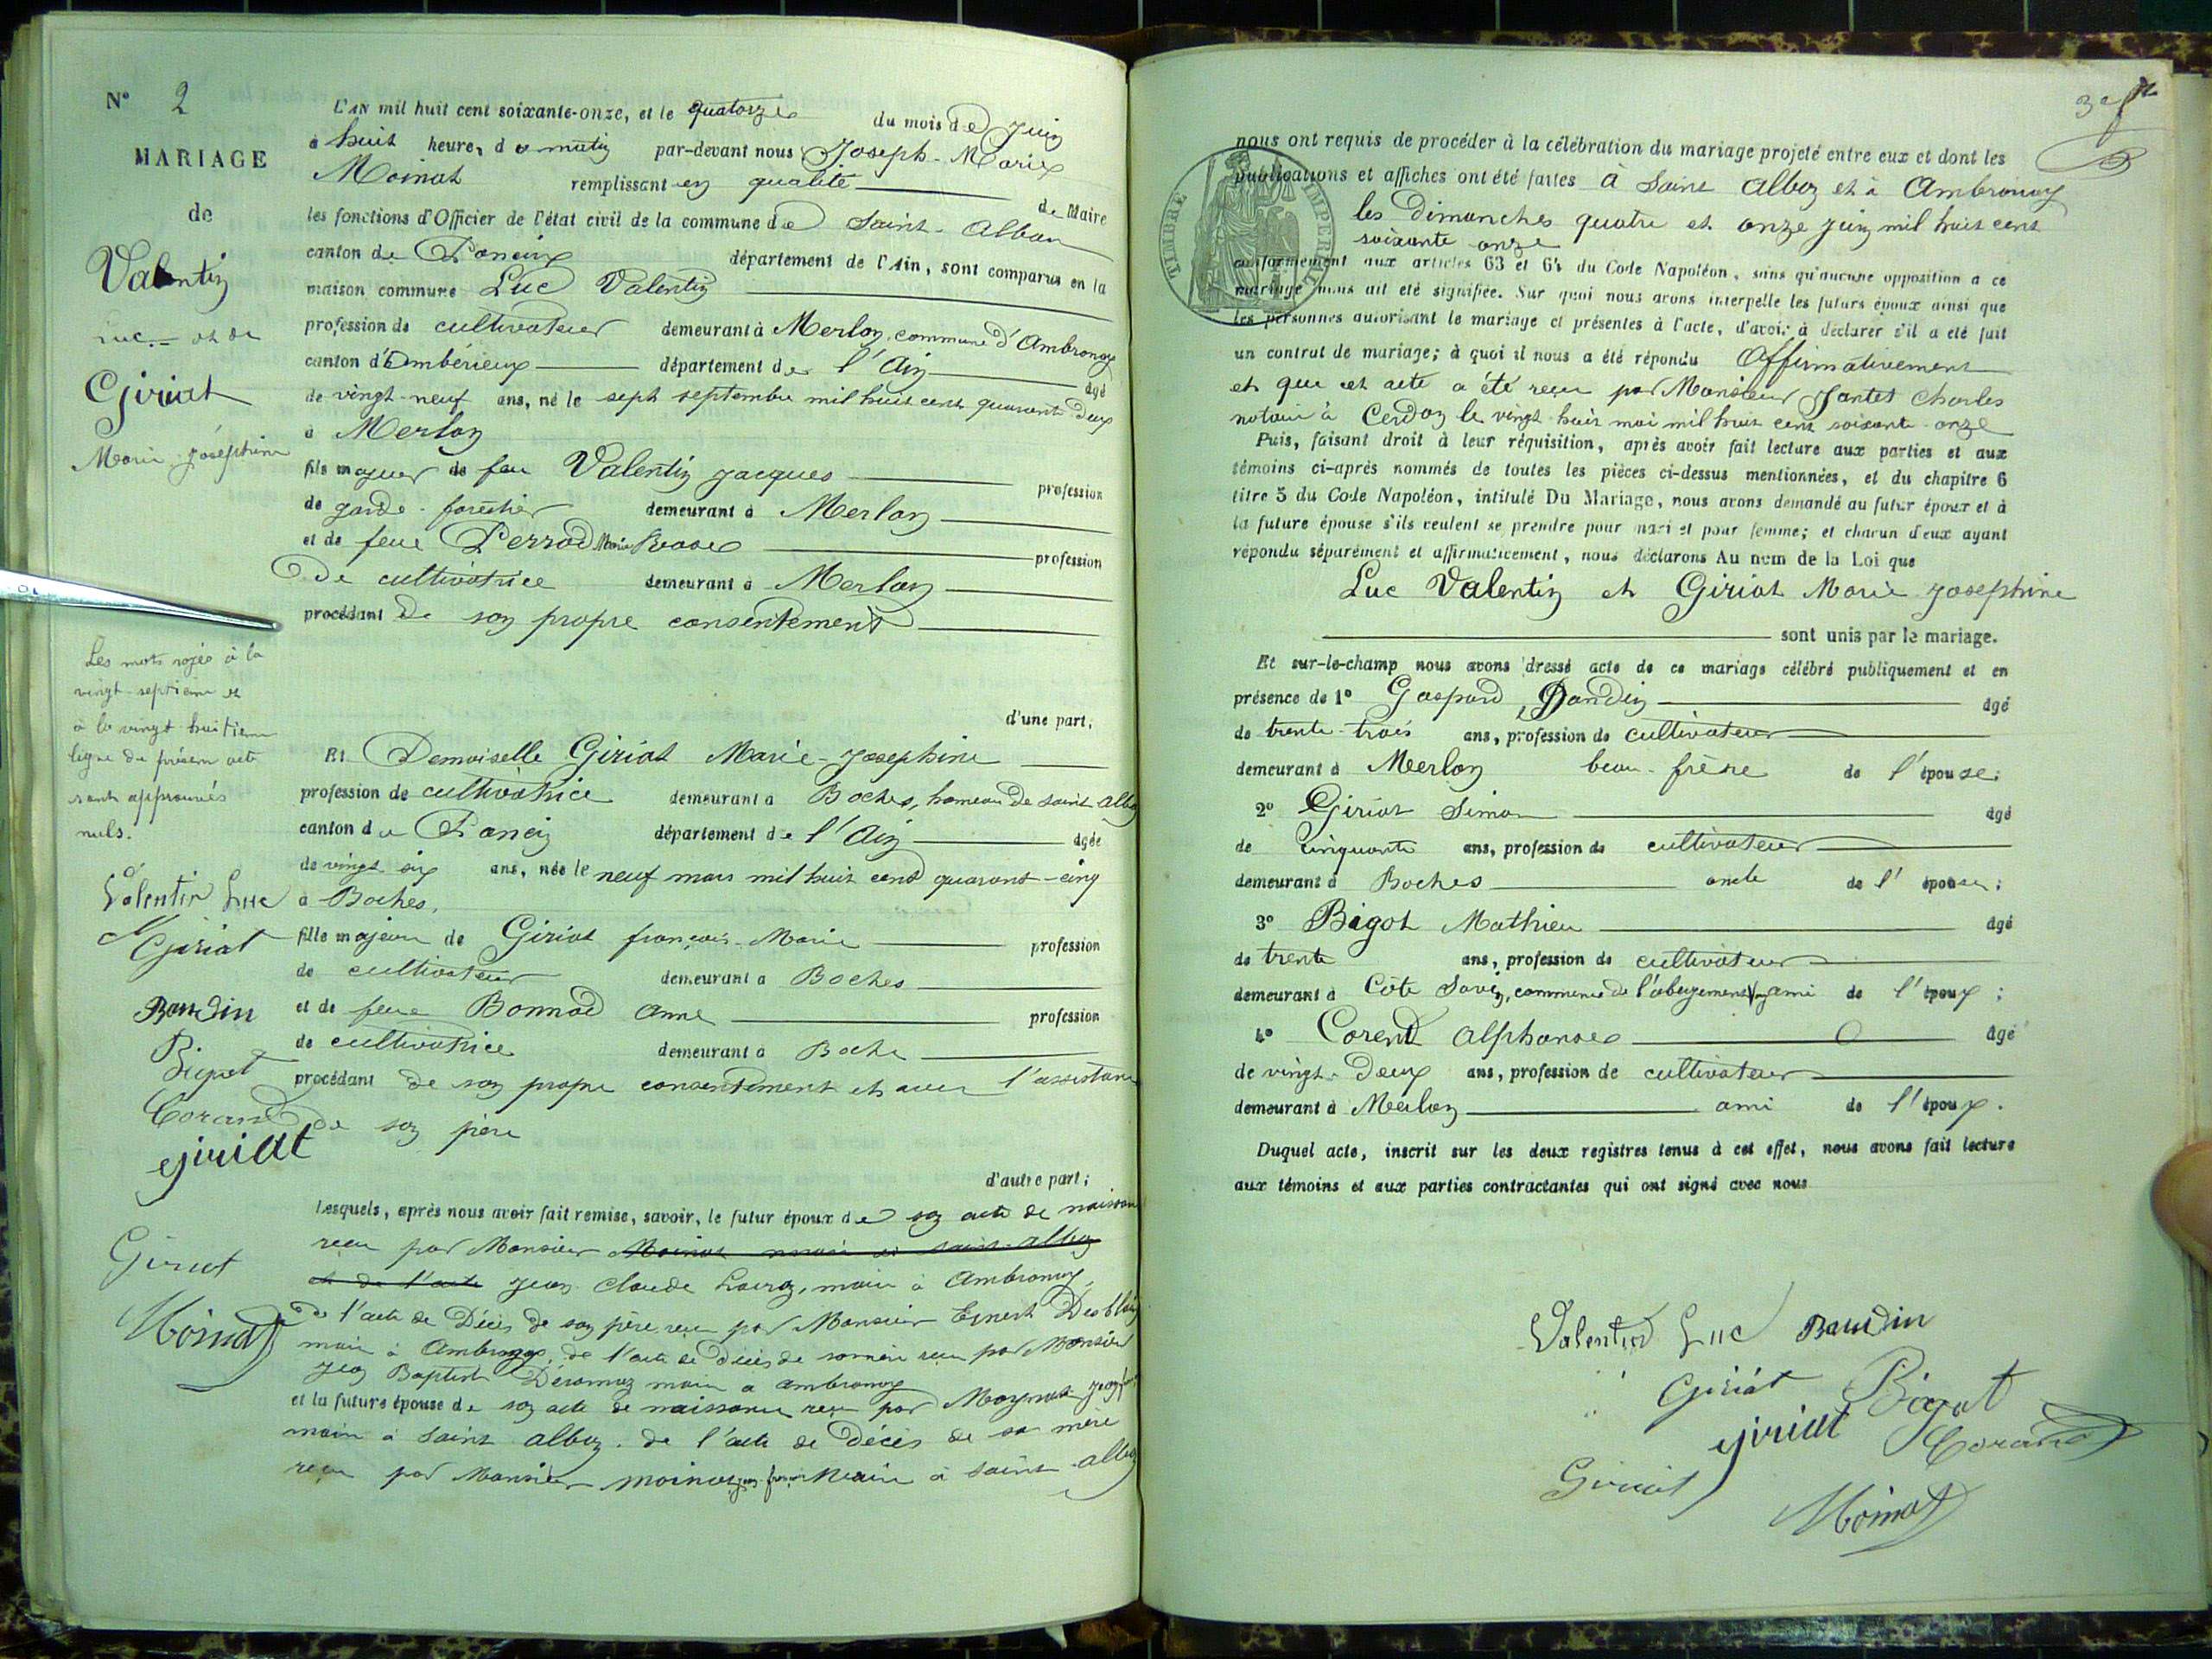 N° 2
MARIAGE
de
Valentin
Luc et de
Giriat
Marie Joséphine
L'AN mil huit cent soixante-onze, et le quatorze du mois de juin
à huit heures du matin par-devant nous Joseph-Marie
Moinat remplissant en qualité de Maire
les fonctions d'Officier de l'état civil de la commune de Saint-Alban
canton de Poncin département de l'Ain, sont comparus en la
maison commune Luc Valentin
profession de cultivateur demeurant à Merloz, commune d'Ambronay
canton d'Ambérieux département de l'Ain âgé
de vingt-neuf ans, né le sept septembre mil huit cent quarante deux
à Merloz
fils majeur de feu Valentin Jacques profession
de garde-forestier demeurant à Merloz
et de feue Perrod Marie Rose profession
De cultivatrice demeurant à Merloz
procédant De son propre consentement
d'une part;
Et Demoiselle Giriat Marie-Josephine
profession de cultivatrice demeurant à Boches, hameau de Saint Alban
canton de Poncin département de l'Ain âgée
de vingt six ans, née le neuf mars mil huit cent quarante-cinq
à Boches.
fille majeure de Giriat françois-Marie profession
de cultivateur demeurant à Boches
et de feue Bonnod Anne profession
de cultivatrice demeurant à Boche
procédant de son propre consentement et avec l'assistance
de son père
d'autre part;
Lesquels, après nous avoir fait remise, savoir, le futur époux de son acte de naissance
reçu par Monsieur Moinat maire à Saint-Alban
et de l'acte Jean Claude maire à Ambronay,
de l'acte de Décès de son père reçu par Monsieur Ernest
maire à Ambronay, de l'acte de décès de sa mère reçu par Monsieur
Jean Baptiste maire à Ambronay
et la future épouse de son acte de naissance reçu par Moynat
maire à Saint Alban. de l'acte de Décès de sa mère
reçu par Monsieur Moinat maire à Saint-Alban
Les mots rayés à la
vingt-septième et
à la vingt huitième
ligne du présent acte
sont approuvés
nuls.
Valentin Luc
Giriat
Baudin
Bigot
Corand
giriat
Giriat
Moinat
nous ont requis de procéder à la célébration du mariage projeté entre eux et dont les
publications et affiches ont été faites à Saint Alban et à Ambronay
les Dimanches quatre et onze juin mil huit cent
soixante onze
conformément aux articles 63 et 64 du Code Napoléon, sans qu'aucune opposition a ce
mariage nous ait été signifiée. Sur quoi nous avons interpellé les futurs époux ainsi que
les personnes autorisant le mariage et présentes à l'acte, d'avoir à déclarer s'il a été fait
un contrat de mariage; à quoi il nous a été répondu Affirmativement
et que cet acte a été reçu par Monsieur Jantet Charles
notaire à Cerdon le vingt huit mai mil huit cent soixante-onze
Puis, faisant droit à leur réquisition, après avoir fait lecture aux parties et aux
témoins ci-après nommés de toutes les pièces ci-dessus mentionnées, et du chapitre 6
titre 5 du Code Napoléon, intitulé Du Mariage, nous avons demandé au futur époux et à
la future épouse s'ils veulent se prendre pour mari et pour femme; et chacun d'eux ayant
répondu séparément et affirmativement, nous déclarons Au nom de la Loi que
Luc Valentin et Giriat Marie Josephine
sont unis par le mariage.
Et sur-le-champ nous avons dressé acte de ce mariage célébré publiquement et en
présence de 1° Gaspard Baudin âgé
de trente-trois ans, profession de cultivateur
demeurant à Merloz beau-frère de l'épouse;
2° Giriat Simon âgé
de cinquante ans, profession de cultivateur
demeurant à Boches oncle de l'épouse;
3° Bigot Mathieu âgé
de trente ans, profession de cultivateur
demeurant à Côte Savin, commune de l'abergement ami de l'époux;
4° Corend Alphonse âgé
de vingt-Deux ans, profession de cultivateur
demeurant à Merloz ami de l'époux.
Duquel acte, inscrit sur les deux registres tenus à cet effet, nous avons fait lecture
aux témoins et aux parties contractantes qui ont signé avec nous
Valentin Luc Baudin
Giriat Bigot
giriat Corand
Giriat
Moinat
TIMBRE IMPERIAL